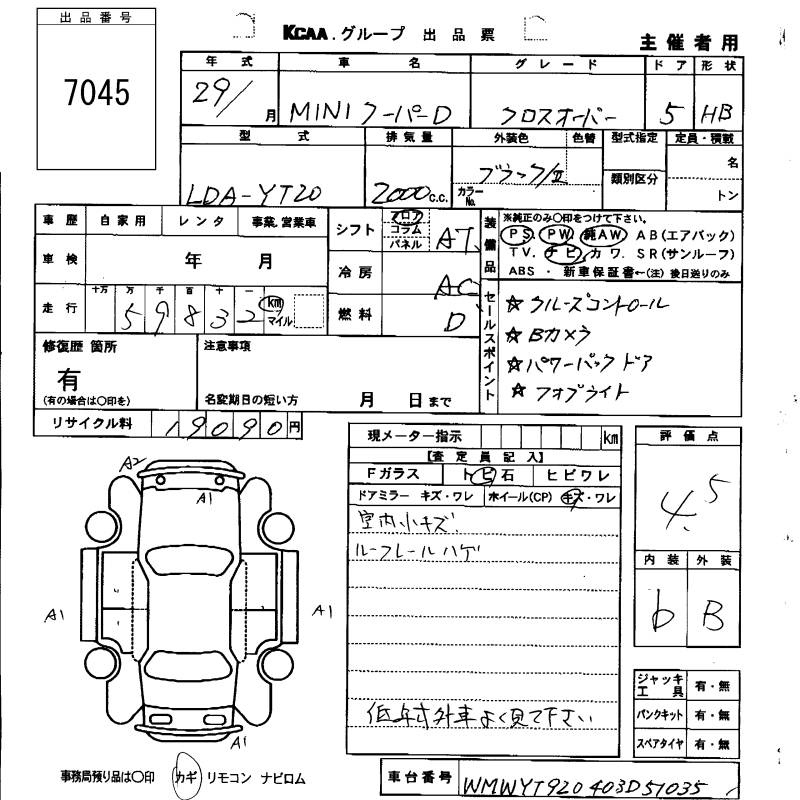 出品番号
7045
KCAA.グループ 出品票
主催者用
年式 車名 グレード ドア 形状
29/ 月 MINI クーパーD クロスオーバー 5 HB
型式 排気量 外装色 色替 型式指定 定員・積載
LDA-YT20 2000 c.c. ブラック/II カラーNo. 類別区分 名
トン
車歴 自家用 レンタ 事業.営業車
車検 年 月
走行 十万 万 千 百 十 一
5 9 8 3 2 km マイル
シフト フロア コラム パネル AT
冷房 AC
燃料 D
装備品 ※純正のみ〇印をつけて下さい。
PS. PW. 純AW AB(エアバック)
TV. ナビ カワ. SR(サンルーフ)
ABS ・ 新車保証書←(注) 後日送りのみ
セールスポイント
☆クルーズコントロール
☆Bカメラ
☆パワーバックドア
☆フォブライト
修復歴 箇所
有
(有の場合は〇印を)
注意事項
名変期日の短い方 月 日まで
リサイクル料 19090円
現メーター指示 km
【査定員記入】
Fガラス トビ石 ヒビワレ
ドアミラー キズ・ワレ ホイール(CP) キズ・ワレ
室内小キズ.
ルーフレールハゲ
低年式外車よく見て下さい
評価点
4.5
内装 外装
b B
ジャッキ工具 有・無
パンクキット 有・無
スペアタイヤ 有・無
A2
A1
A1
A1
A1
事務局預り品は〇印 カギ リモコン ナビロム
車台番号 WMWYT920403D51035